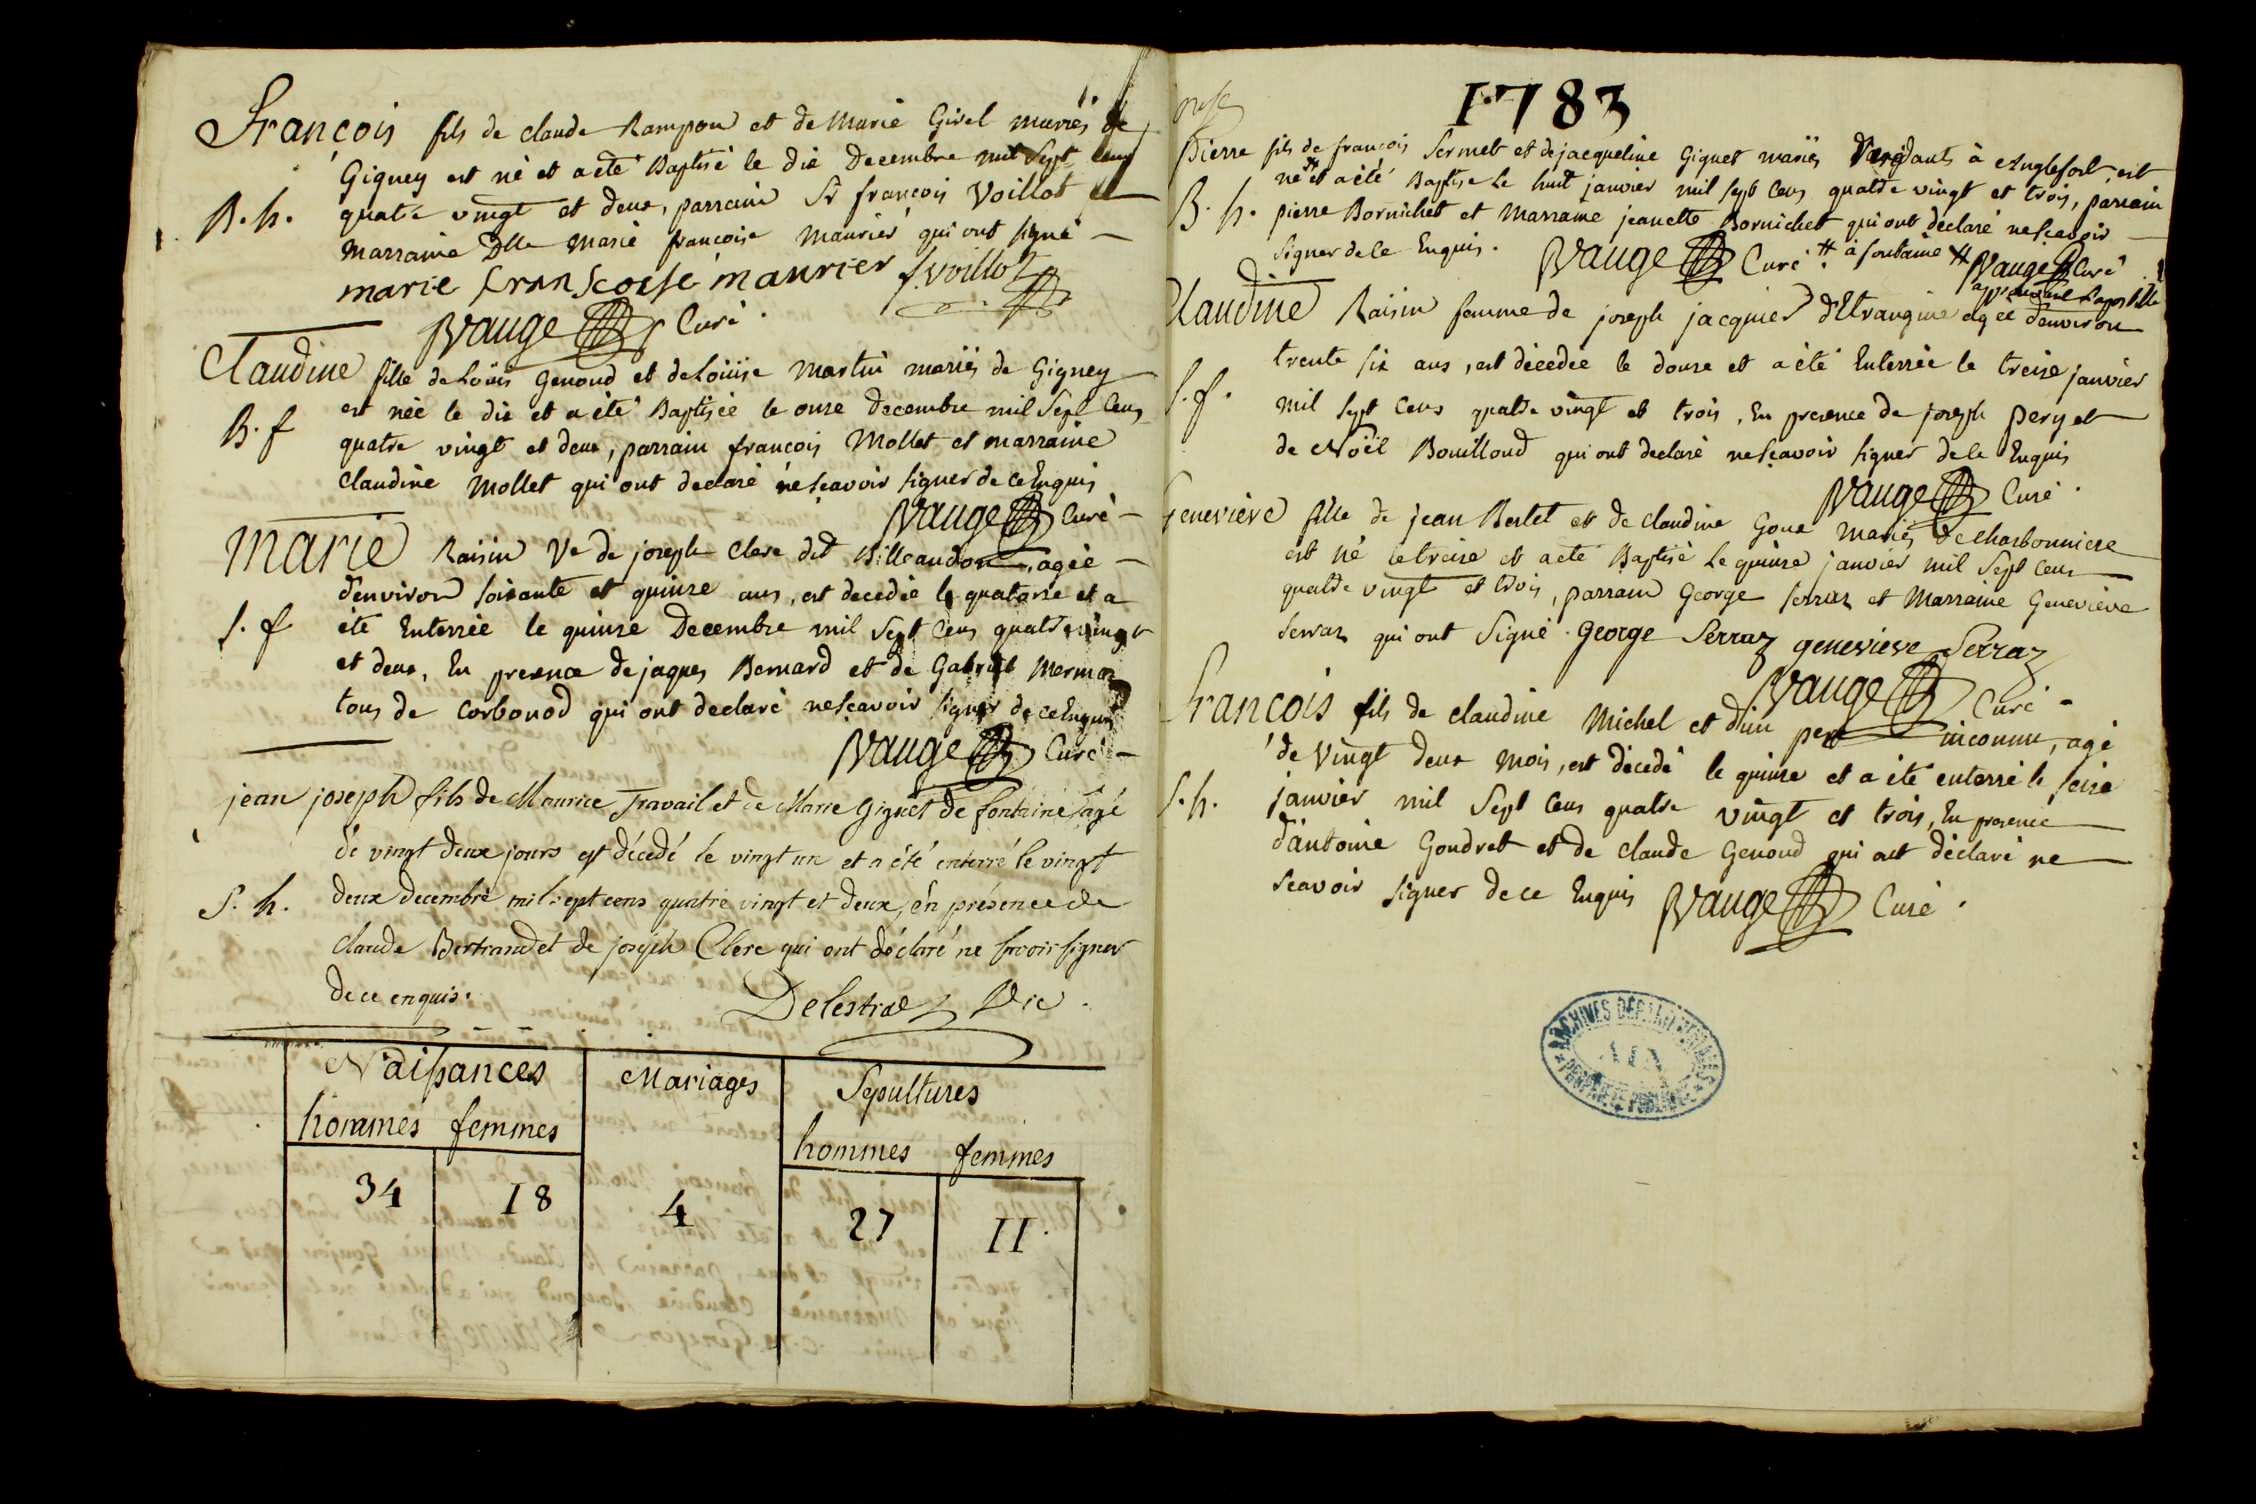 François fils de claude Rampon et de Marie Girel mariés de
Gigney est né et a eté Baptisé le dix Decembre mil Sept Cens
B. h. quatre vingt et deux, parrain Sr françois Voillot et
Marraine Dlle Marie françoise Maurier qui ont signé
marie franscoise maurier f. voillot
Vauge Curé.
Claudine fille de Loüis Genoud et de Loüise Martin mariés de Gigney
est née le dix et a été Baptisée le onze decembre mil Sept Cens
B. f quatre vingt et deux, parrain françois Mollet et marraine
Claudine Mollet qui ont declaré ne sçavoir signer de ce Enquis
Vauge Curé
Marie Raisin Ve de joseph Clerc dit Billeaudon, agée
d'environ soixante et quinze ans, est decedée le quatorze et a
S. f été Enterrée le quinze Decembre mil Sept Cens quatre vingt
et deux, En presence de jaques Bernard et de Gabriel Mermoz
tous de Corbonod qui ont declaré ne sçavoir signer de ce Enquis
Vauge Curé
jean joseph fils de Maurice Travail et de Marie Giguet de fontaine agé
de vingt deux jours est décedé le vingt un et a été enterré le vingt
S. h. deux decembre mil sept cens quatre vingt et deux, en présence de
claude Bertrand et de joseph Clerc qui ont déclaré ne savoir signer
de ce enquis.
Delestraz Vic.
Naissances Mariages Sepultures
hommes femmes hommes femmes
34 18 4 27 II.
1783
Pierre fils de françois Sermet et de jacqueline Giguet mariés residants à Anglefort, est
né # et a été Baptisé le huit janvier mil sept Cens quatre vingt et trois, parrain
B. h. pierre Bornichet et Marraine jeanette Bornichet qui ont declaré ne sçavoir
signer de ce Enquis. Vauge Curé # à fontaine # Vauge Curé
approuvant l'apostille
Claudine Raisin femme de joseph jacquier d'Etrangine agée d'environ
trente six ans, est décedée le douze et a été Enterrée le treize janvier
S. f. mil Sept Cens quatre vingt et trois, En presence de joseph pery et
de Noël Bouilloud qui ont declaré ne sçavoir signer de ce Enquis
Vauge Curé.
Geneviève fille de jean Berlet et de claudine Goux mariés de charbonniere
est né le treize et a eté Baptisé le quinze janvier mil Sept Cens
quatre vingt et trois, parrain George Serraz et Marraine Geneviève
Serraz qui ont Signé. George Serraz genevieve Serraz
Vauge Curé
François fils de claudine Michel et d'un pere inconnu, agé
de Vingt deux Mois, est décedé le quinze et a été enterré le seize
S. h. janvier mil Sept Cens quatre vingt et trois, En presence
d'antoine Goudret et de claude Genoud qui ont déclaré ne
scavoir signer de ce Enquis Vauge Curé.
ARCHIVES DÉPARTEMENTALES
AIN
PROPRIÉTÉ PUBLIQUE